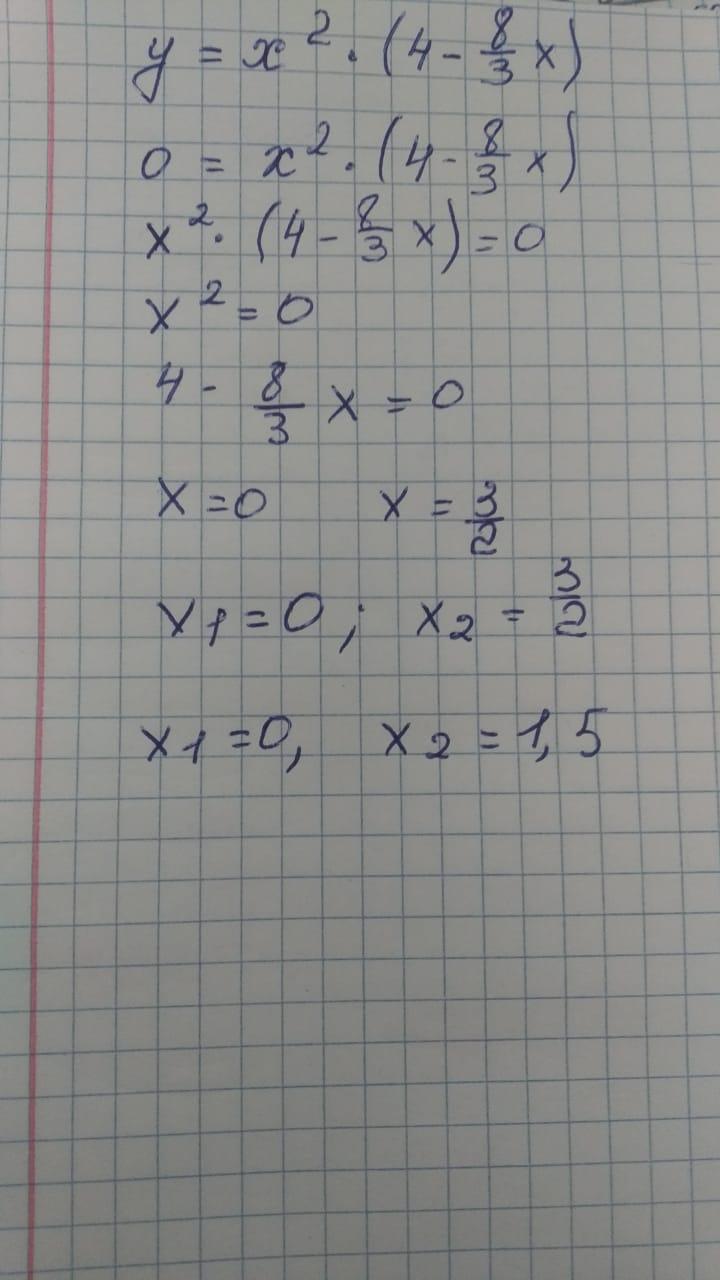 y = x² · (4 - 8/3 x)
0 = x² · (4 - 8/3 x)
x² · (4 - 8/3 x) = 0
x² = 0
4 - 8/3 x = 0
x = 0 x = 3/2
x1 = 0; x2 = 3/2
x1 = 0, x2 = 1,5